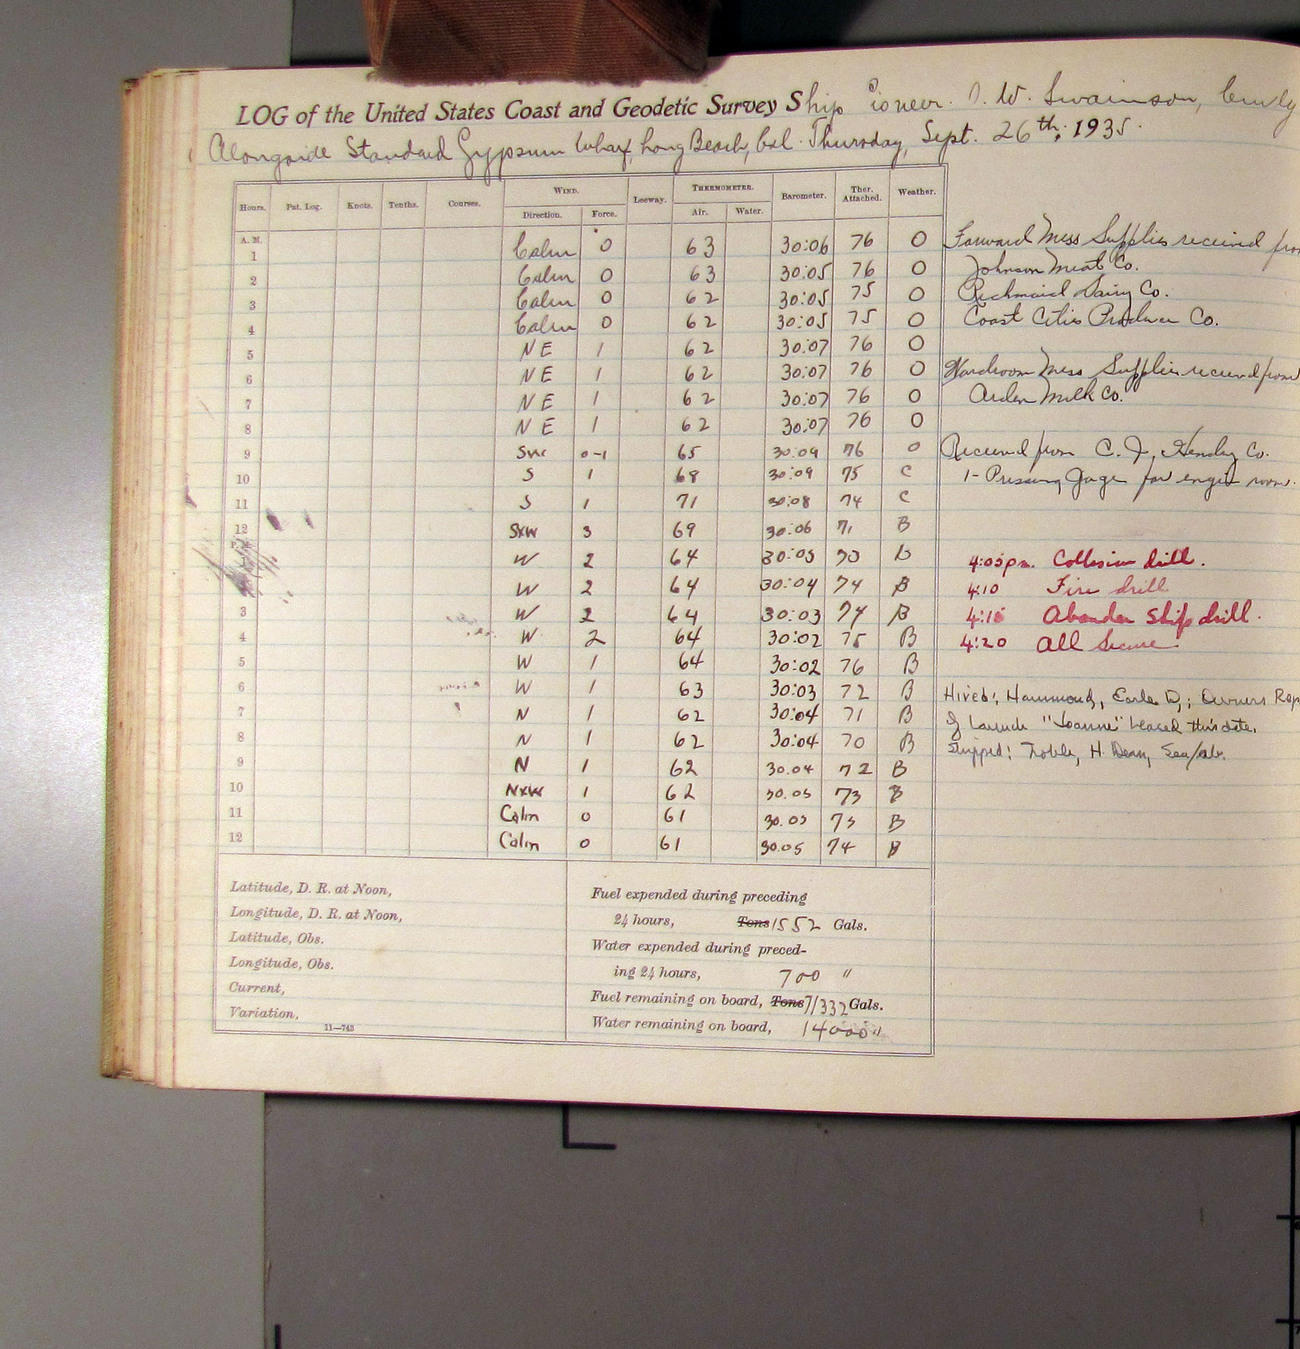 LOG of the United States Coast and Geodetic Survey Ship Pioneer. O. W. Swainson, Comdg
Alongside Standard Gypsum Wharf, Long Beach, Cal. Thursday, Sept. 26th, 1935.
Hours. Pat. Log. Knots. Tenths. Courses. WIND. Leeway. THERMOMETER. Barometer. Ther. Attached. Weather.
Direction. Force. Air. Water.
A. M.
1 Calm 0 63 30:06 76 O Forward Mess Supplies received from
2 Calm 0 63 30:05 76 O Johnson Meat Co.
3 Calm 0 62 30:05 75 O Richmaid Dairy Co.
4 Calm 0 62 30:05 75 O Coast Cities Produce Co.
5 NE 1 62 30:07 76 O
6 NE 1 62 30:07 76 O Wardroom Mess Supplies received from
7 NE 1 62 30:07 76 O Arden Milk Co.
8 NE 1 62 30:07 76 O
9 SW 0-1 65 30:09 76 O Received from C. J. Hendry Co.
10 S 1 68 30:09 75 C 1- Pressure Gage for engine room.
11 S 1 71 30:08 74 C
12 SxW 3 69 30:06 71 B
W 2 64 30:05 70 B 4:05 pm. Collision drill.
W 2 64 30:04 74 B 4:10 Fire drill
3 W 2 64 30:03 74 B 4:15 Abandon Ship drill.
4 W 2 64 30:02 75 B 4:20 All Secure
5 W 1 64 30:02 76 B
6 W 1 63 30:03 72 B Hired: Hammond, Earle D.; Owners Rep
7 N 1 62 30:04 71 B of Launch "Joanne" leased this date.
8 N 1 62 30:04 70 B Shipped: Noble, H. Dean, Sea/
9 N 1 62 30.04 72 B
10 NxW 1 62 30.05 73 B
11 Calm 0 61 30.05 75 B
12 Calm 0 61 30.05 74 B
Latitude, D. R. at Noon, Fuel expended during preceding
Longitude, D. R. at Noon, 24 hours, Tons 1552 Gals.
Latitude, Obs. Water expended during preced-
Longitude, Obs. ing 24 hours, 700 "
Current, Fuel remaining on board, Tons 71332 Gals.
Variation, Water remaining on board, 14000 "
11—743